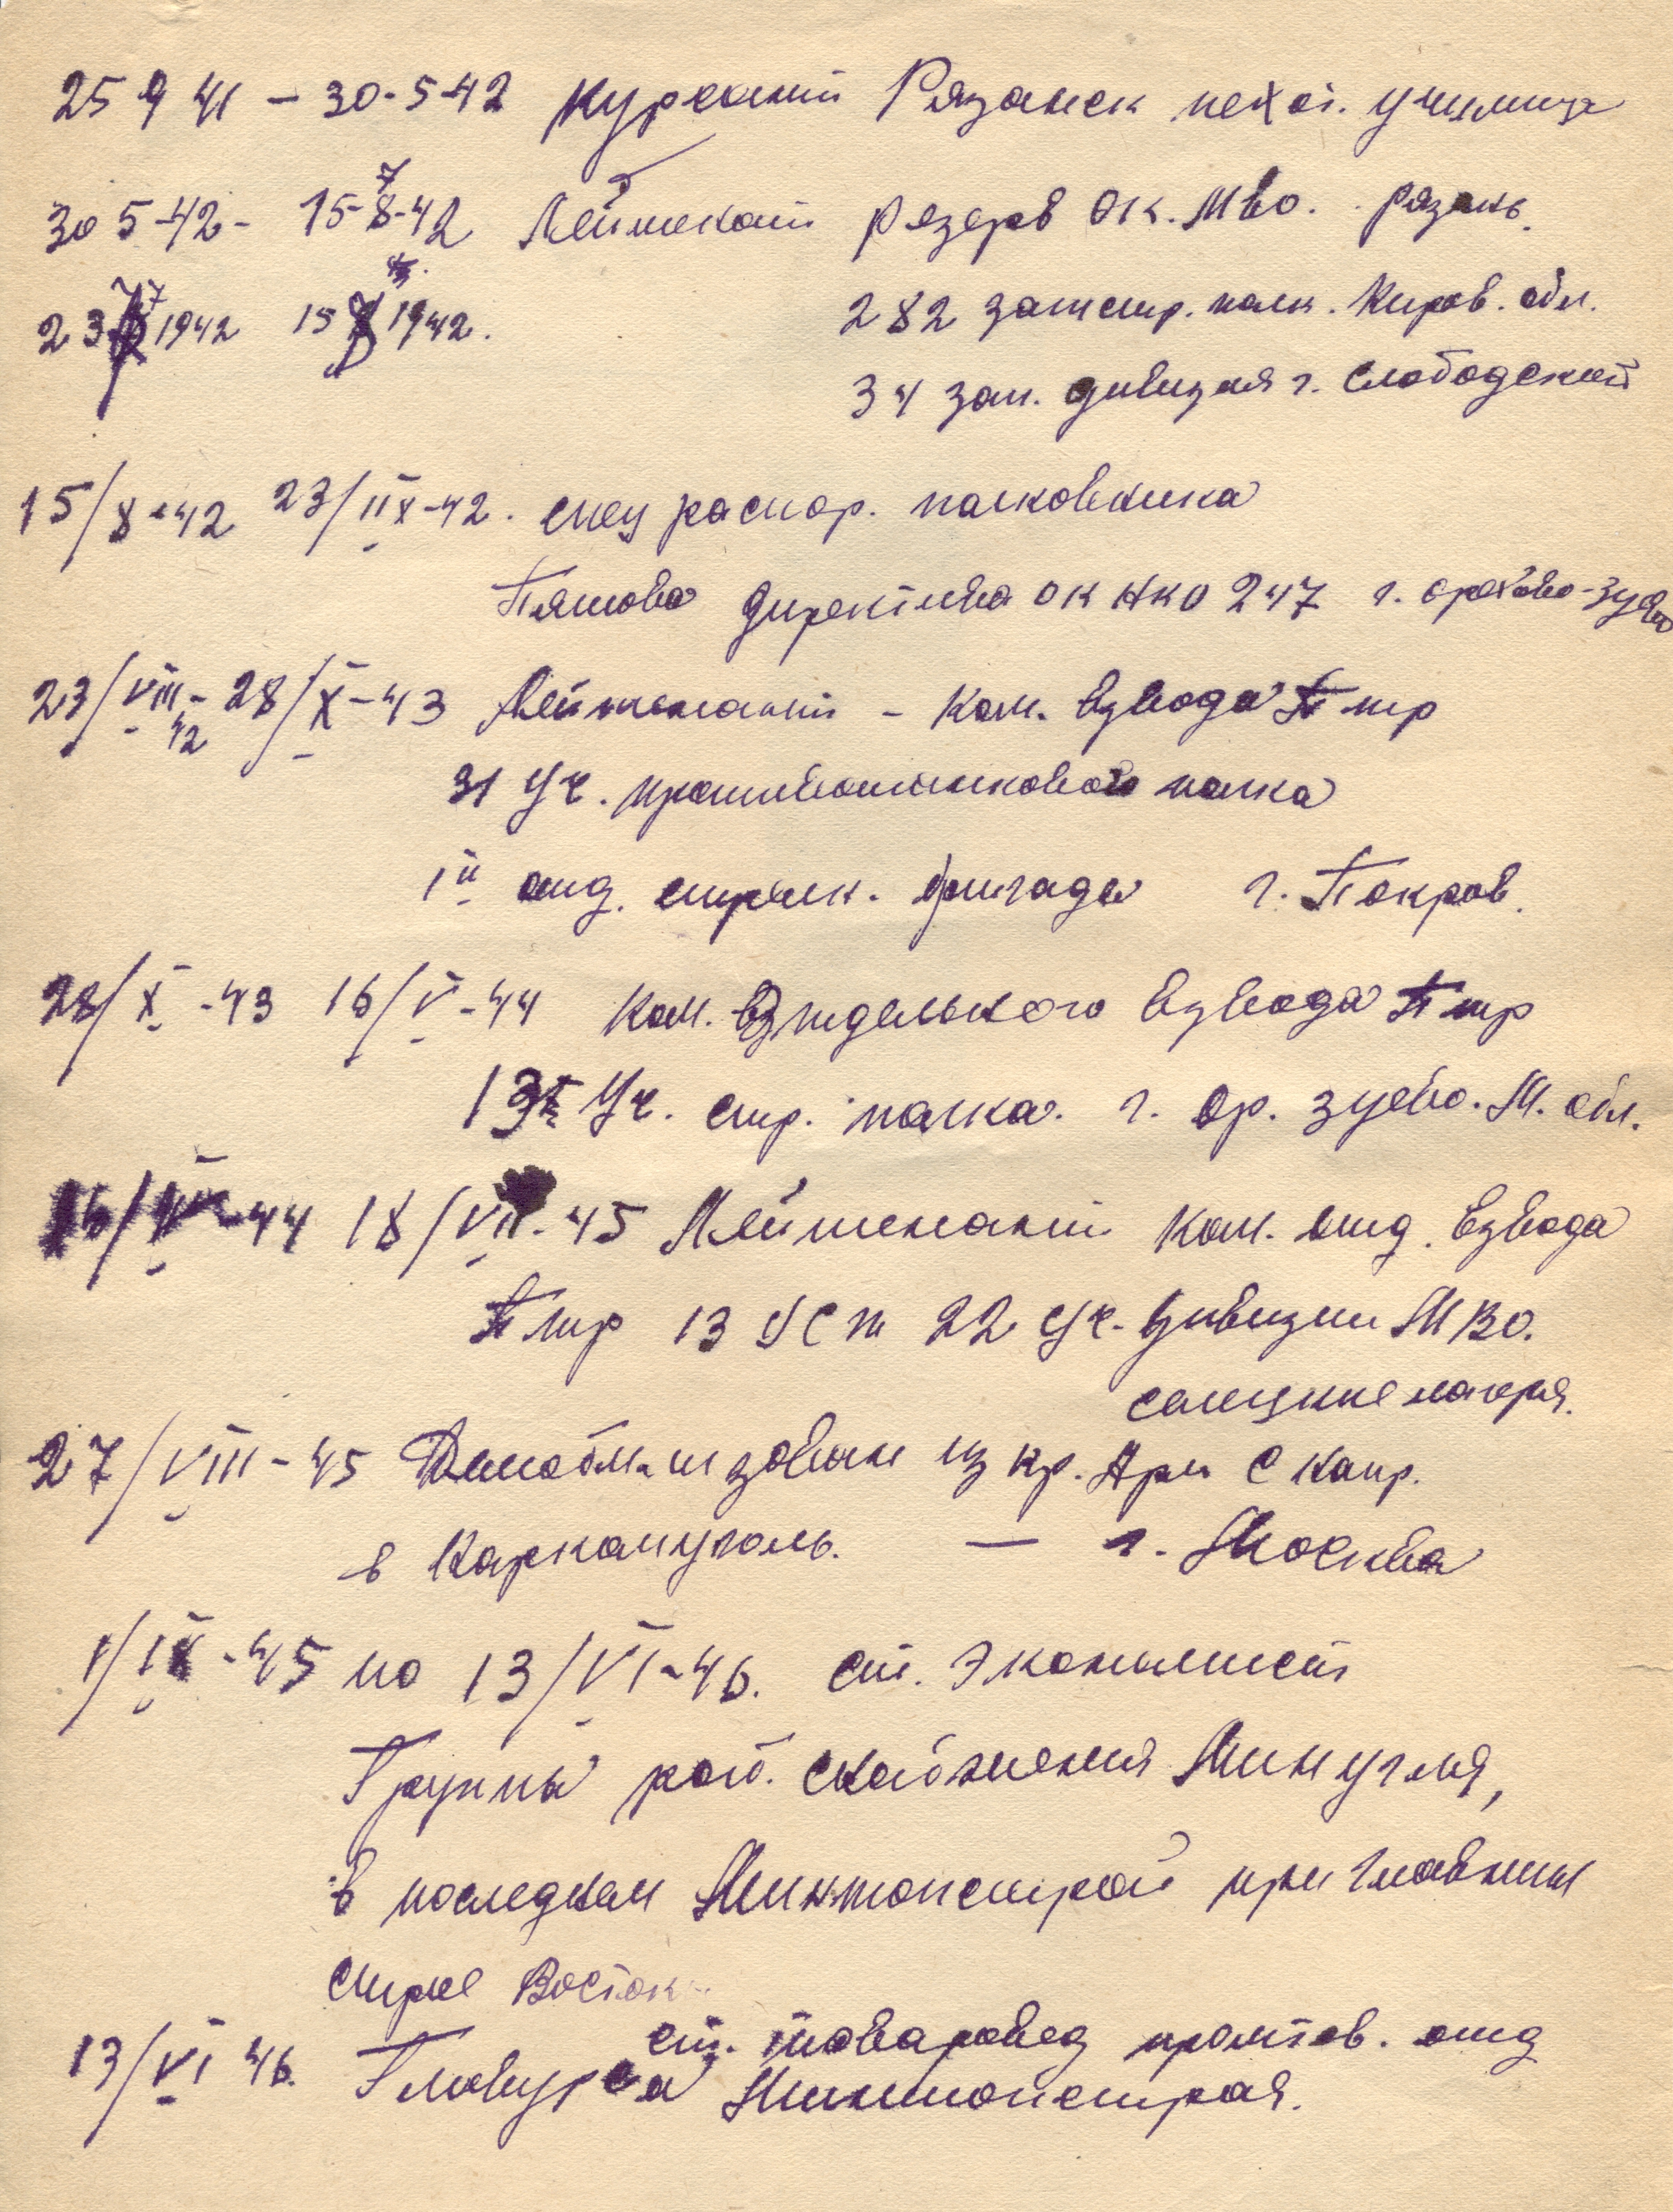 25 9 41 – 30-5-42 Курсант Рязанск пехот. училища
30 5-42 – 15-7-42 Лейтенант резерв ОК. МВО. Рязань.
23 7 1942 15 1942. 282 зап стр. полк. Киров. обл.
34 зап. дивизия г. Слободской
15/8-42 23/IIX-42. спец распор. полковника
директива ОК НКО 247 г. Орехово-Зуево
23/VIII-42 28/X-43 Лейтенант – Ком. взвода Птр
31 Уч. противотанкового полка
1й отд. стрелк. бригада г. Покров.
28/X-43 16/V-44 Ком. отдельного взвода Птр
Уч. стр. полка. г. Ор. Зуево. М. обл.
16/V-44 18/VII-45 Лейтенант Ком. отд. взвода
Птр 13 УСП 22 Уч. дивизии МВО.
лагеря.
27/VIII-45 Демобилизован из Кр. Арм с напр.
в Наркомуголь. — г. Москва
1/IX-45 по 13/VI-46. ст. экономист
Группы раб. снабжения Минугля,
в последнем Минтопстрой при Главном
Восток
13/VI 46. ст. товаровед промтов. отд
Главурса Минтопстроя.